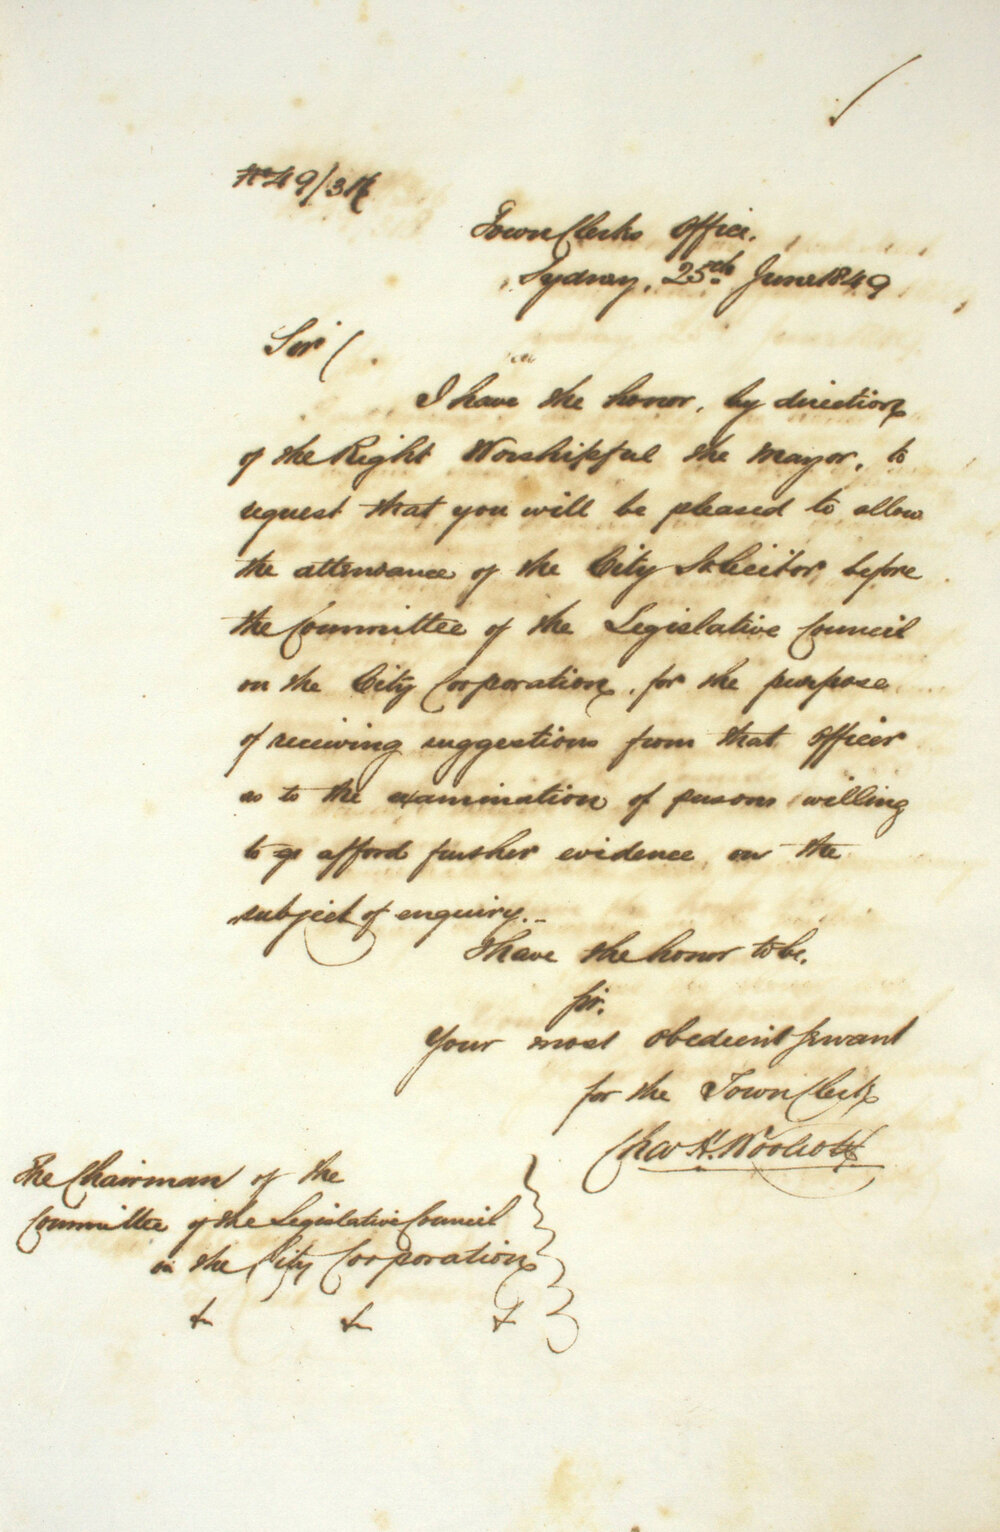 No 49/314
Town Clerks Office.
Sydney, 25th June 1849
Sir (
I have the honor, by direction
of the Right Worshipful the Mayor, to
request that you will be pleased to allow
the attendance of the City Solicitor before
the Committee of the Legislative Council
on the City Corporation, for the purpose
of receiving suggestions from that Officer
as to the examination of persons willing
to go afford further evidence on the
subject of enquiry..
I have the honor to be.
Sir.
Your most obedient servant
for the Town Clerk
Chas H. Woolcott
The Chairman of the
Committee of the Legislative Council
on the City Corporation
&c &c &c